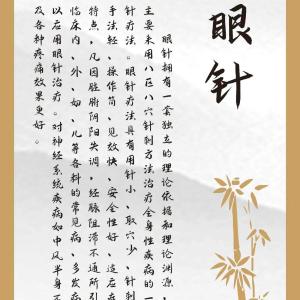 眼针
眼针拥有一套独立的理论依据和理论渊源，
主要采用八区八穴针刺方法治疗全身性疾病的一
针疗法。眼针疗法具有用针小，取穴少，针刺
手法轻，操作简，见效快，安全性好，适应
特点，凡因脏腑阴阳失调，经脉阻滞不通所引
临床内、外、妇、儿等各科的常见病，多发病
以应用眼针治疗。对神经系统疾病如中风半身不
及各种疼痛效果更好。